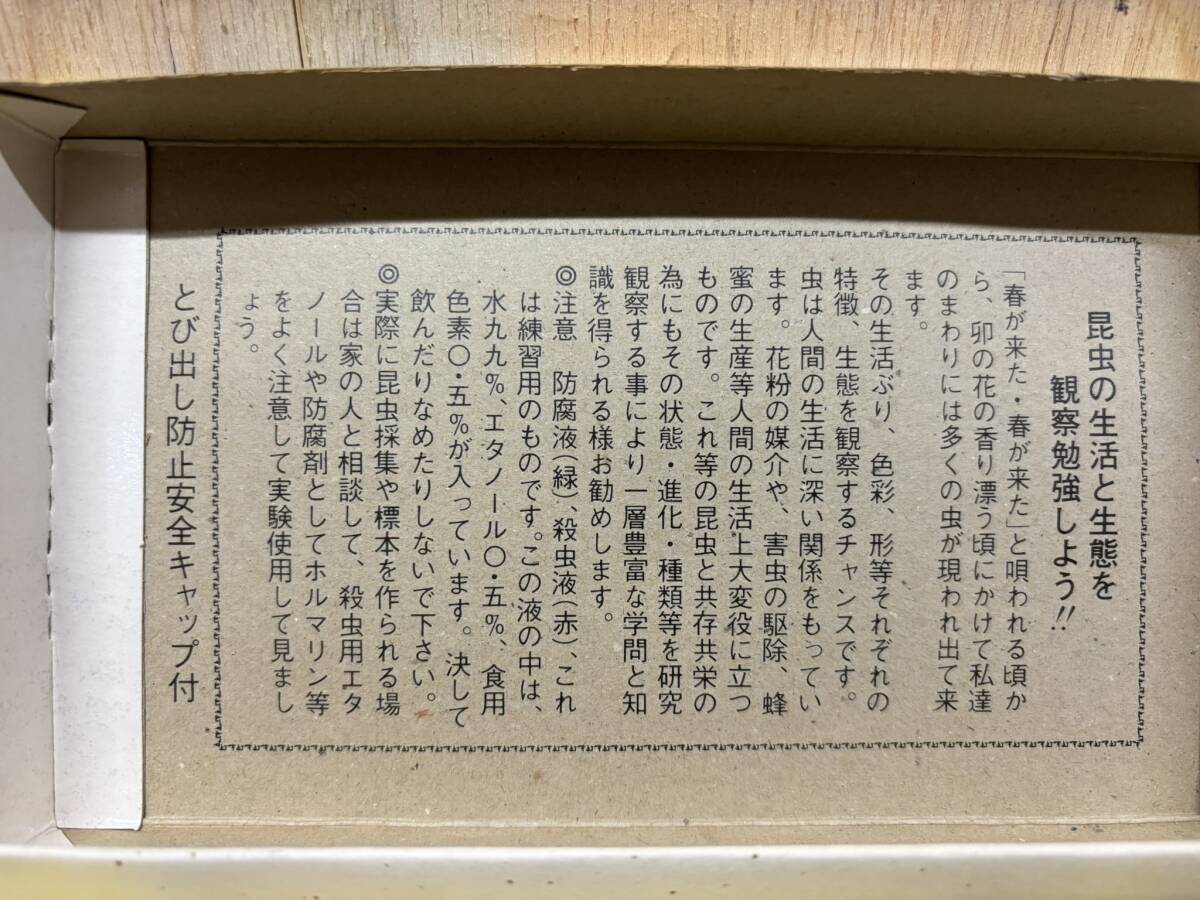 昆虫の生活と生態を
観察勉強しよう!!
「春が来た・春が来た」と唄われる頃か
ら、卯の花の香り漂う頃にかけて私達
のまわりには多くの虫が現われ出て来
ます。
その生活ぶり、色彩、形等それぞれの
特徴、生態を観察するチャンスです。
虫は人間の生活に深い関係をもってい
ます。花粉の媒介や、害虫の駆除、蜂
蜜の生産等人間の生活上大変役に立つ
ものです。これ等の昆虫と共存共栄の
為にもその状態・進化・種類等を研究
観察する事により一層豊富な学問と知
識を得られる様お勧めします。
◎注意　防腐液(緑)、殺虫液(赤)、これ
は練習用のものです。この液の中は、
水九九%、エタノール〇・五%、食用
色素〇・五%が入っています。決して
飲んだりなめたりしないで下さい。
◎実際に昆虫採集や標本を作られる場
合は家の人と相談して、殺虫用エタ
ノールや防腐剤としてホルマリン等
をよく注意して実験使用して見まし
ょう。
とび出し防止安全キャップ付